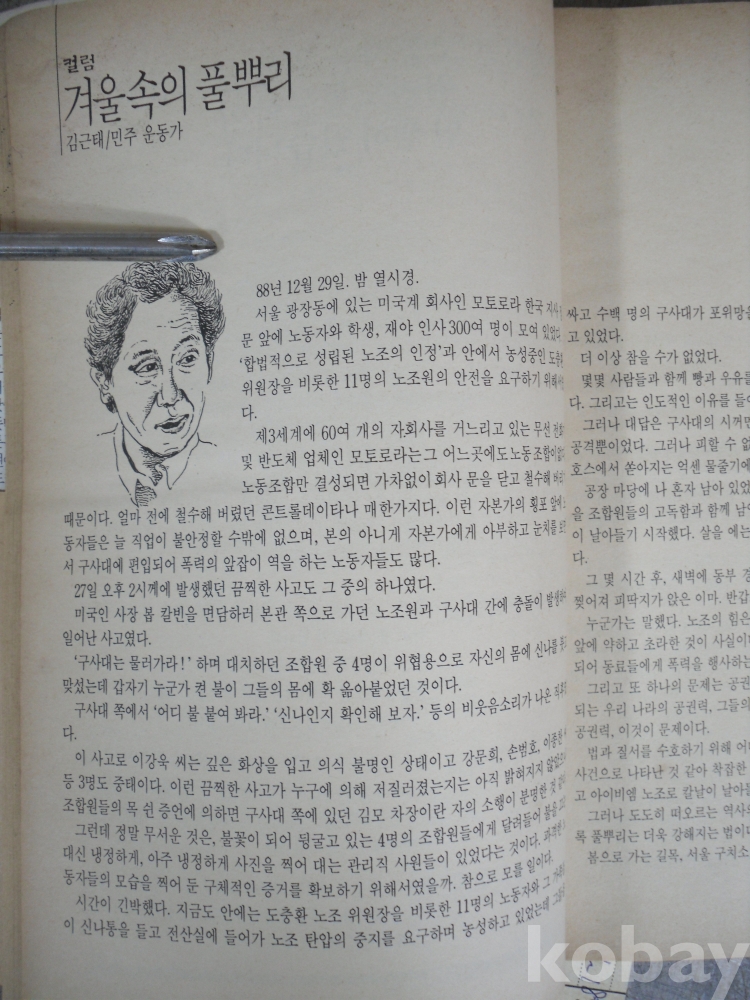 컬럼
겨울속의 풀뿌리
김근태/민주 운동가
88년 12월 29일. 밤 열시경.
서울 광장동에 있는 미국계 회사인 모토로라 한국 지사
문 앞에 노동자와 학생, 재야 인사 300여 명이 모여 있었다
‘합법적으로 성립된 노조의 인정’과 안에서 농성중인 도충환
위원장을 비롯한 11명의 노조원의 안전을 요구하기 위해
다.
제3세계에 60여 개의 자회사를 거느리고 있는 무선 전화
및 반도체 업체인 모토로라는 그 어느곳에도 노동조합이
노동조합만 결성되면 가차없이 회사 문을 닫고 철수해
때문이다. 얼마 전에 철수해 버렸던 콘트롤데이타나 매한가지다. 이런 자본가의 횡포 앞에
동자들은 늘 직업이 불안정할 수밖에 없으며, 본의 아니게 자본가에게 아부하고 눈치를
서 구사대에 편입되어 폭력의 앞잡이 역을 하는 노동자들도 많다.
27일 오후 2시께에 발생했던 끔찍한 사고도 그 중의 하나였다.
미국인 사장 봅 칼빈을 면담하러 본관 쪽으로 가던 노조원과 구사대 간에 충돌이
일어난 사고였다.
‘구사대는 물러가라!’ 하며 대치하던 조합원 중 4명이 위협용으로 자신의 몸에 신나를
맞섰는데 갑자기 누군가 켠 불이 그들의 몸에 확 옮아붙었던 것이다.
구사대 쪽에서 ‘어디 불 붙여 봐라.’ ‘신나인지 확인해 보자.’ 등의 비웃음소리가 나온
다.
이 사고로 이강욱 씨는 깊은 화상을 입고 의식 불명인 상태이고 강문희, 손범호,
등 3명도 중태이다. 이런 끔찍한 사고가 누구에 의해 저질러졌는지는 아직 밝혀지지
조합원들의 목 쉰 증언에 의하면 구사대 쪽에 있던 김모 차장이란 자의 소행이 분명한
그런데 정말 무서운 것은, 불꽃이 되어 뒹굴고 있는 4명의 조합원들에게 달려들어 불을
대신 냉정하게, 아주 냉정하게 사진을 찍어 대는 관리직 사원들이 있었다는 것이다.
동자들의 모습을 찍어 둔 구체적인 증거를 확보하기 위해서였을까. 참으로 모를 일이다.
시간이 긴박했다. 지금도 안에는 도충환 노조 위원장을 비롯한 11명의 노동자와 그
이 신나통을 들고 전산실에 들어가 노조 탄압의 중지를 요구하며 농성하고 있었는데
싸고 수백 명의 구사대가 포위망을
고 있었다.
더 이상 참을 수가 없었다.
몇몇 사람들과 함께 빵과 우유를
다. 그리고는 인도적인 이유를 들어
그러나 대답은 구사대의 시꺼먼
공격뿐이었다. 그러나 피할 수 없
호스에서 쏟아지는 억센 물줄기에
공장 마당에 나 혼자 남아 있었
을 조합원들의 고독함과 함께 남
이 날아들기 시작했다. 살을 에는
다.
그 몇 시간 후, 새벽에 동부 경
찢어져 피딱지가 앉은 이마. 반갑
누군가는 말했다. 노조의 힘은
앞에 약하고 초라한 것이 사실이
되어 동료들에게 폭력을 행사하는
그리고 또 하나의 문제는 공권
되는 우리 나라의 공권력, 그들의
공권력, 이것이 문제이다.
법과 질서를 수호하기 위해 어
사건으로 나타난 것 같아 착잡한
고 아이비엠 노조로 칼날이 날아
그러나 도도히 떠오르는 역사의
록 풀뿌리는 더욱 강해지는 법이
봄으로 가는 길목, 서울 구치소
kobay